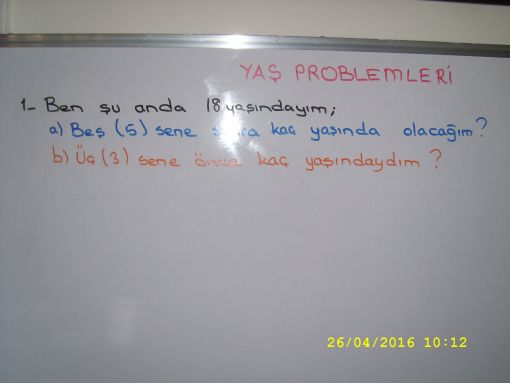 YAŞ PROBLEMLERİ
1- Ben şu anda 18 yaşındayım;
a) Beş (5) sene sonra kaç yaşında olacağım?
b) Üç (3) sene önce kaç yaşındaydım ?
26/04/2016 10:12